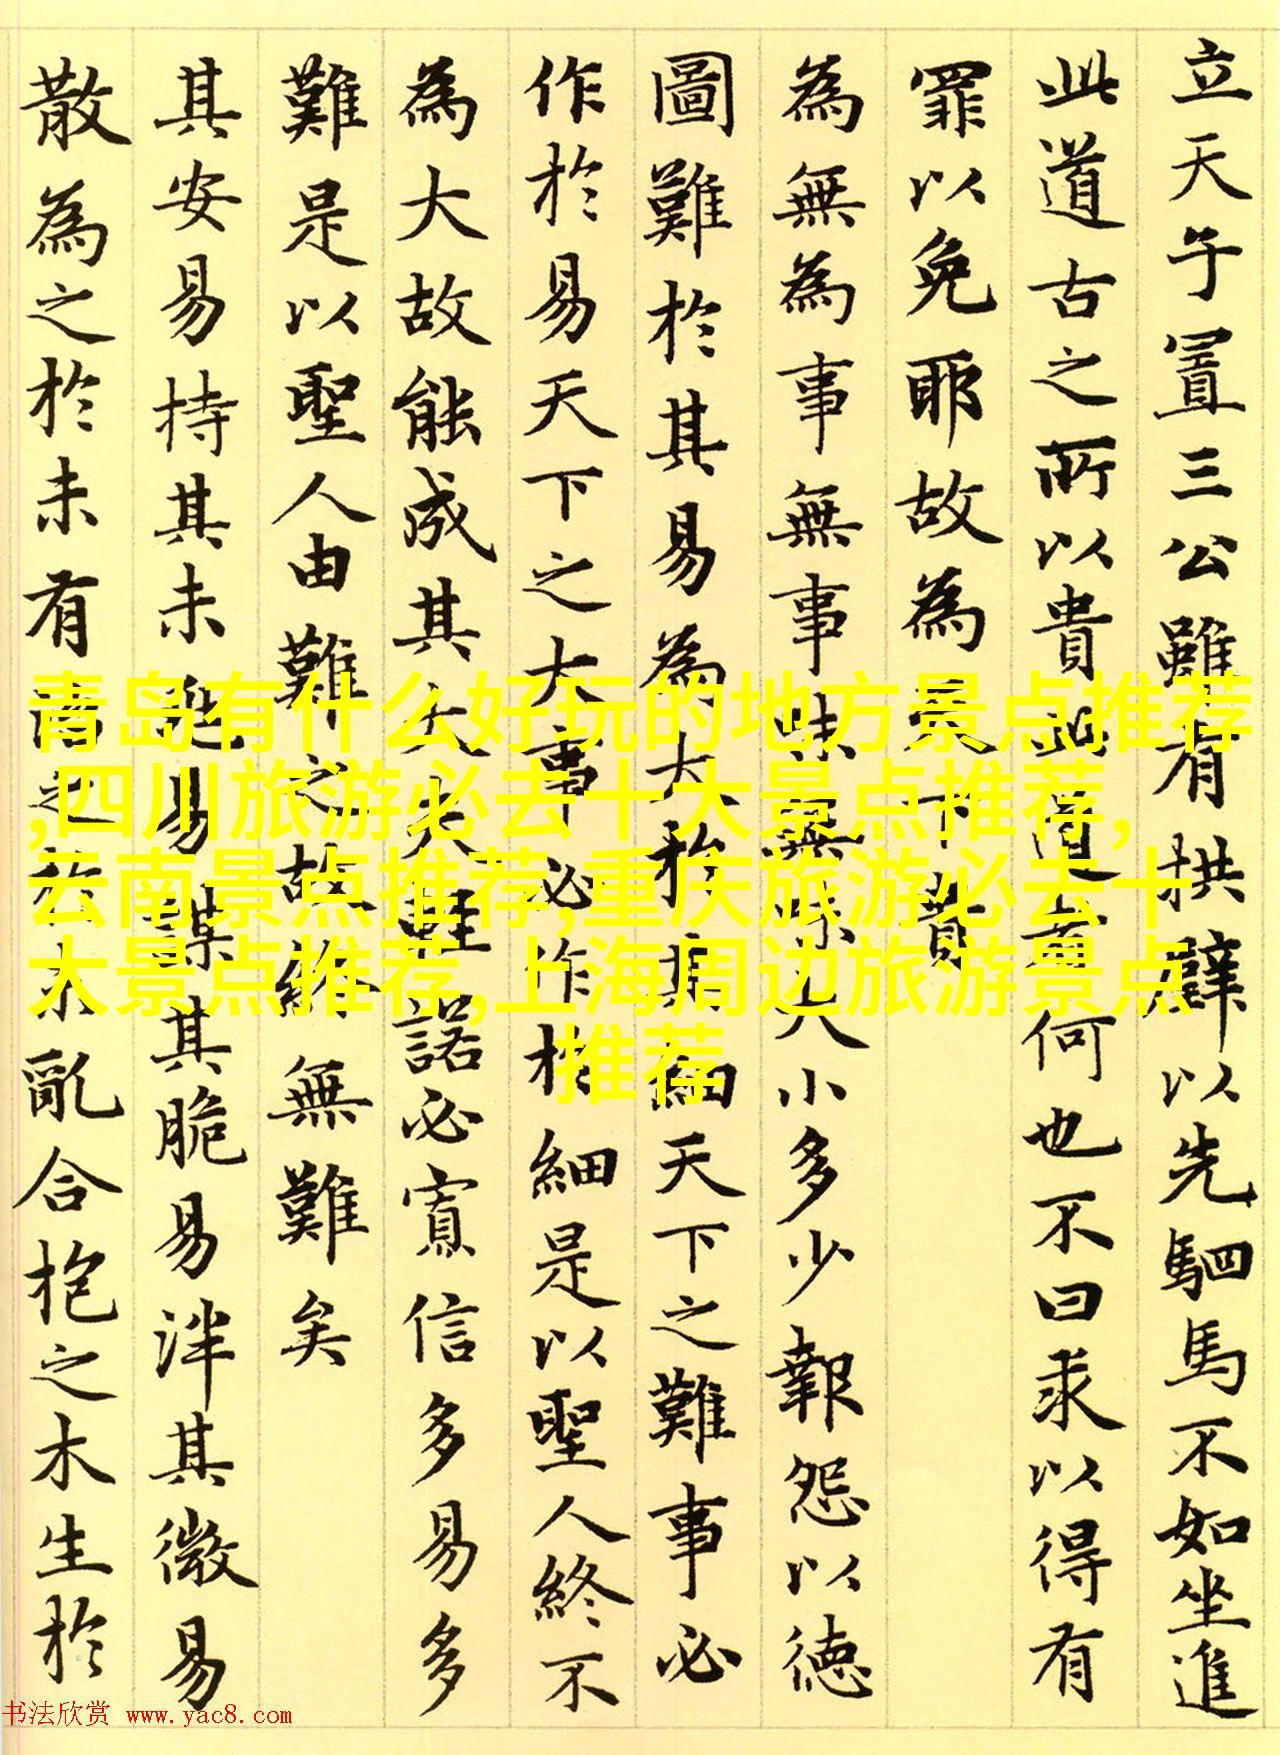 立天子置三公雖有拱璧以先駟馬不如坐進
此道古之所以貴此道者何也不曰求以得有
罪以免耶故為天下貴
為無為事無事味無味大小多少報怨以德
圖難於其易為大於其細天下之難事必
作於易天下之大事必作於細是以聖人終不
為大故能成其大夫輕諾必寡信多易多
難是以聖人由難之故終無難矣
其安易持其未兆易謀其脆易泮其微易
散為之於未有治之於未亂合抱之木生於
青岛有什么好玩的地方景点推荐
,四川旅游必去十大景点推荐,
云南景点推荐,重庆旅游必去十
大景点推荐,上海周边旅游景点
推荐
书法欣赏 www.yac8.com